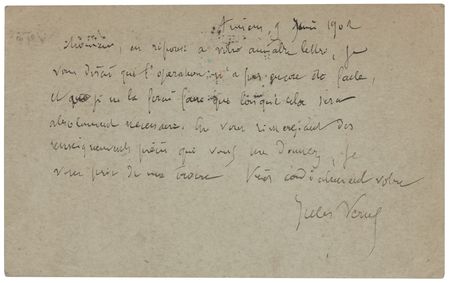 Amiens, 9 1902
Monsieur, en réponse à votre aimable lettre, je
vous dirai que l'opération n'a pas encore été faite,
et que je ne la ferai faire que lorsque cela sera
absolument nécessaire. En vous remerciant des
renseignements précis que vous me donnez, je
vous prie de me croire Très cordialement votre
Jules Verne